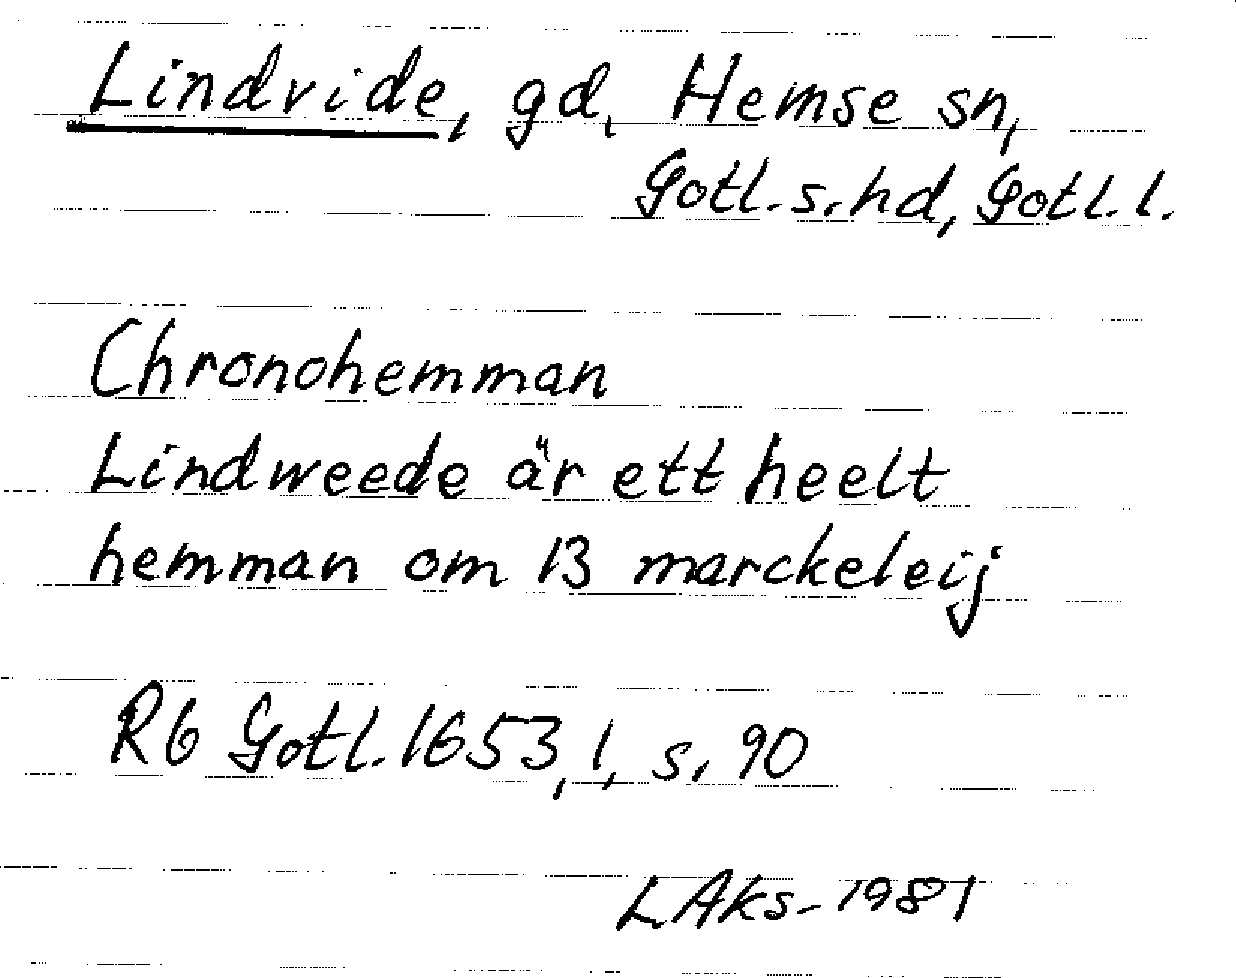 Lindvide, gd, Hemse sn,
Gotl. s. hd, Gotl. l.
Chronohemman
Lindweede är ett heelt
hemman om 13 marckeleij
Rb Gotl. 1653, 1, s. 90
LAks- 1981